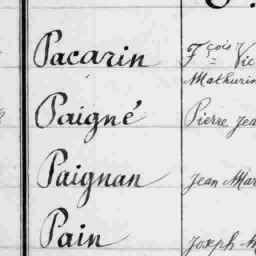 Pacarin Fçois Vic
Mathurin
Paigné Pierre Jea
Paignan Jean Mar
Pain Joseph M